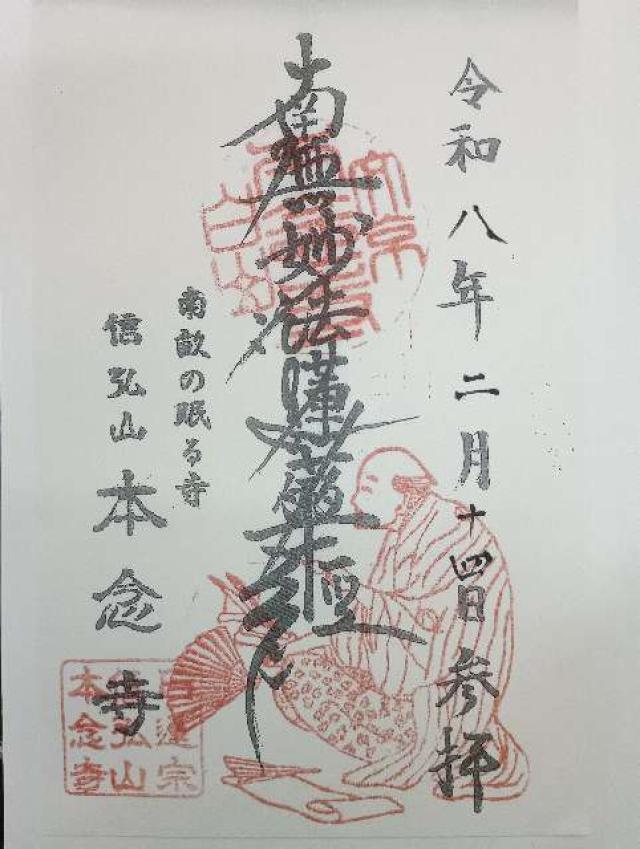 令和八年二月十四日 参拝
南無妙法蓮華経
南畝の眠る寺
信弘山 本念寺
日蓮宗
信弘山
本念寺